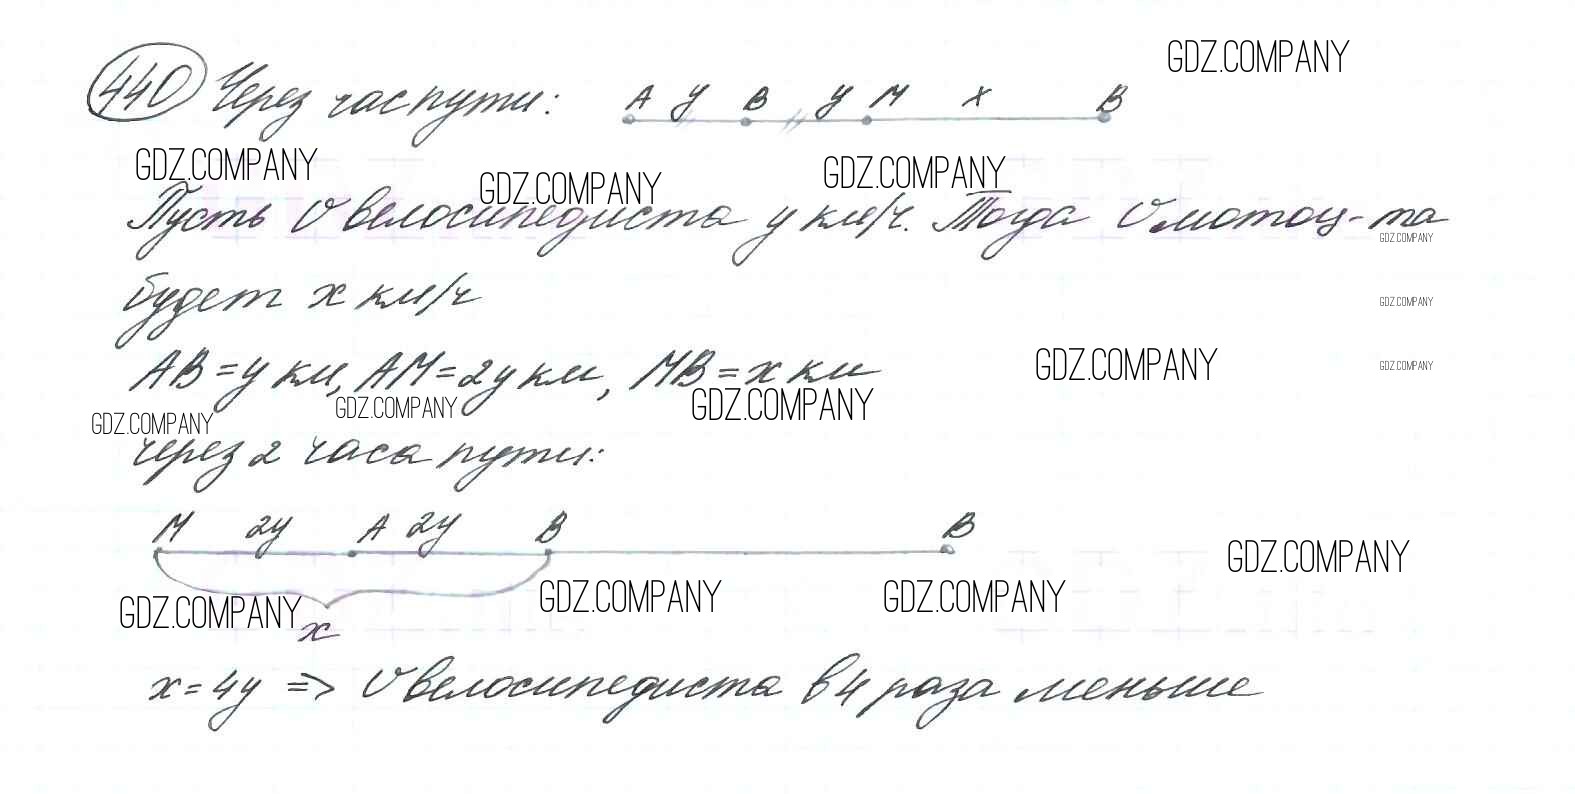 GDZ.COMPANY
440 Через час пути: A y B y M x B
GDZ.COMPANY GDZ.COMPANY GDZ.COMPANY
Пусть V велосипедиста y км/ч. Тогда V мотоц-та
GDZ.COMPANY
будет x км/ч
GDZ.COMPANY
AB=y км, AM=2y км, MB=x км
GDZ.COMPANY GDZ.COMPANY
GDZ.COMPANY GDZ.COMPANY GDZ.COMPANY
через 2 часа пути:
M 2y A 2y B B
GDZ.COMPANY
GDZ.COMPANY GDZ.COMPANY GDZ.COMPANY
x
x=4y => V велосипедиста в 4 раза меньше